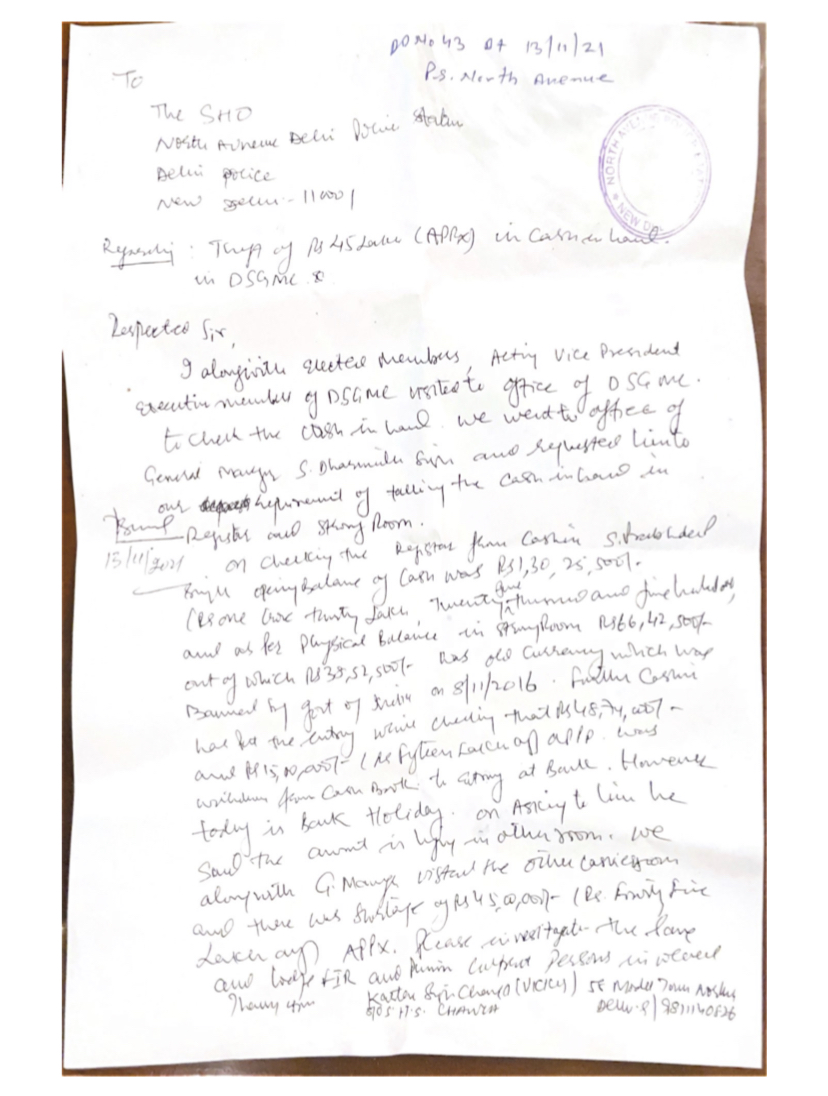 DD No 43 Dt 13/11/21
P.S. North Avenue
To
The SHO
North Avneue Delhi Police Station
Delhi Police
New Delhi - 110001
NORTH AVENUE
NEW DE
Regarding : Theft of Rs 45 Lakh (APPx) in Cash in hand.
in DSGMC
Respected Sir,
I alongwith elected Members, Acting Vice President
Executive member of DSGMC visited to office of DSGMC.
to check the cash in hand. we went to office of
General Manager S. Dharminder Singh and requested him to
our requirement of tallying the cash in hand in
Register and Strong Room.
13/11/2021
on checking the Register from Cashier S.
Singh opening balance of Cash was Rs 1,30,25,500/-
(Rs one Crore thirty Lakh, Twenty five thousand and five hundred)
and as per Physical Balance in Strong Room Rs 66,42,500/-
out of which Rs 38,52,500/- was old currency which was
Banned by govt of India on 8/11/2016. Further Cashier
has the entry while checking that
and Rs 15,00,000/- (Rs Fifteen Lakh was
from Cash Book at Bank. However
today is Bank Holiday. on Asking to him he
Said the amount is lying in other room. we
alongwith G. Manager visited the other room
and there was Shortage of Rs 45,00,000/- (Rs. Fourty Five
Lakh APPx. Please investigate the
and lodge FIR and Persons involved
Kartar Singh Chawla (VICKY) 5E Model Town
S/O S. H.S. CHAWLA